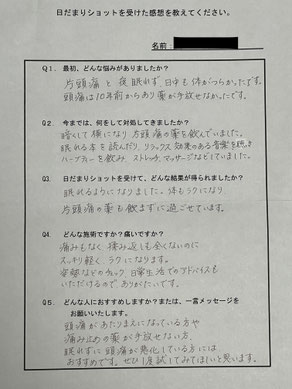 日だまりショットを受けた感想を教えてください。
名前:
Q1. 最初、どんな悩みがありましたか?
片頭痛と夜眠れず、日中も体がつらかったです。
頭痛は10年前からあり薬が手放せなかったです。
Q2. 今までは、何をして対処してきましたか?
暗くして横になり片頭痛の薬を飲んでいました。
眠れる本を読んだり、リラックス効果のある音楽を聴き
ハーブティーを飲み ストレッチ、マッサージなどしていました。
Q3. 日だまりショットを受けて、どんな結果が得られましたか?
眠れるようになりました。体もラクになり
片頭痛の薬も飲まずに過ごせています。
Q4. どんな施術ですか?痛いですか?
痛みもなく 揉み返しも全くないのに
スッキリ軽く、ラクになります。
姿勢などのチェック 日常生活でのアドバイスも
いただけるのでありがたいです。
Q5. どんな人におすすめしますか?または、一言メッセージを
お願いいたします。
頭痛があたりまえになっている方や
痛み止めの薬が手放せない方、
眠れずに頭痛が悪化している方には
おすすめです。ぜひ1度試してみてほしいと思います。